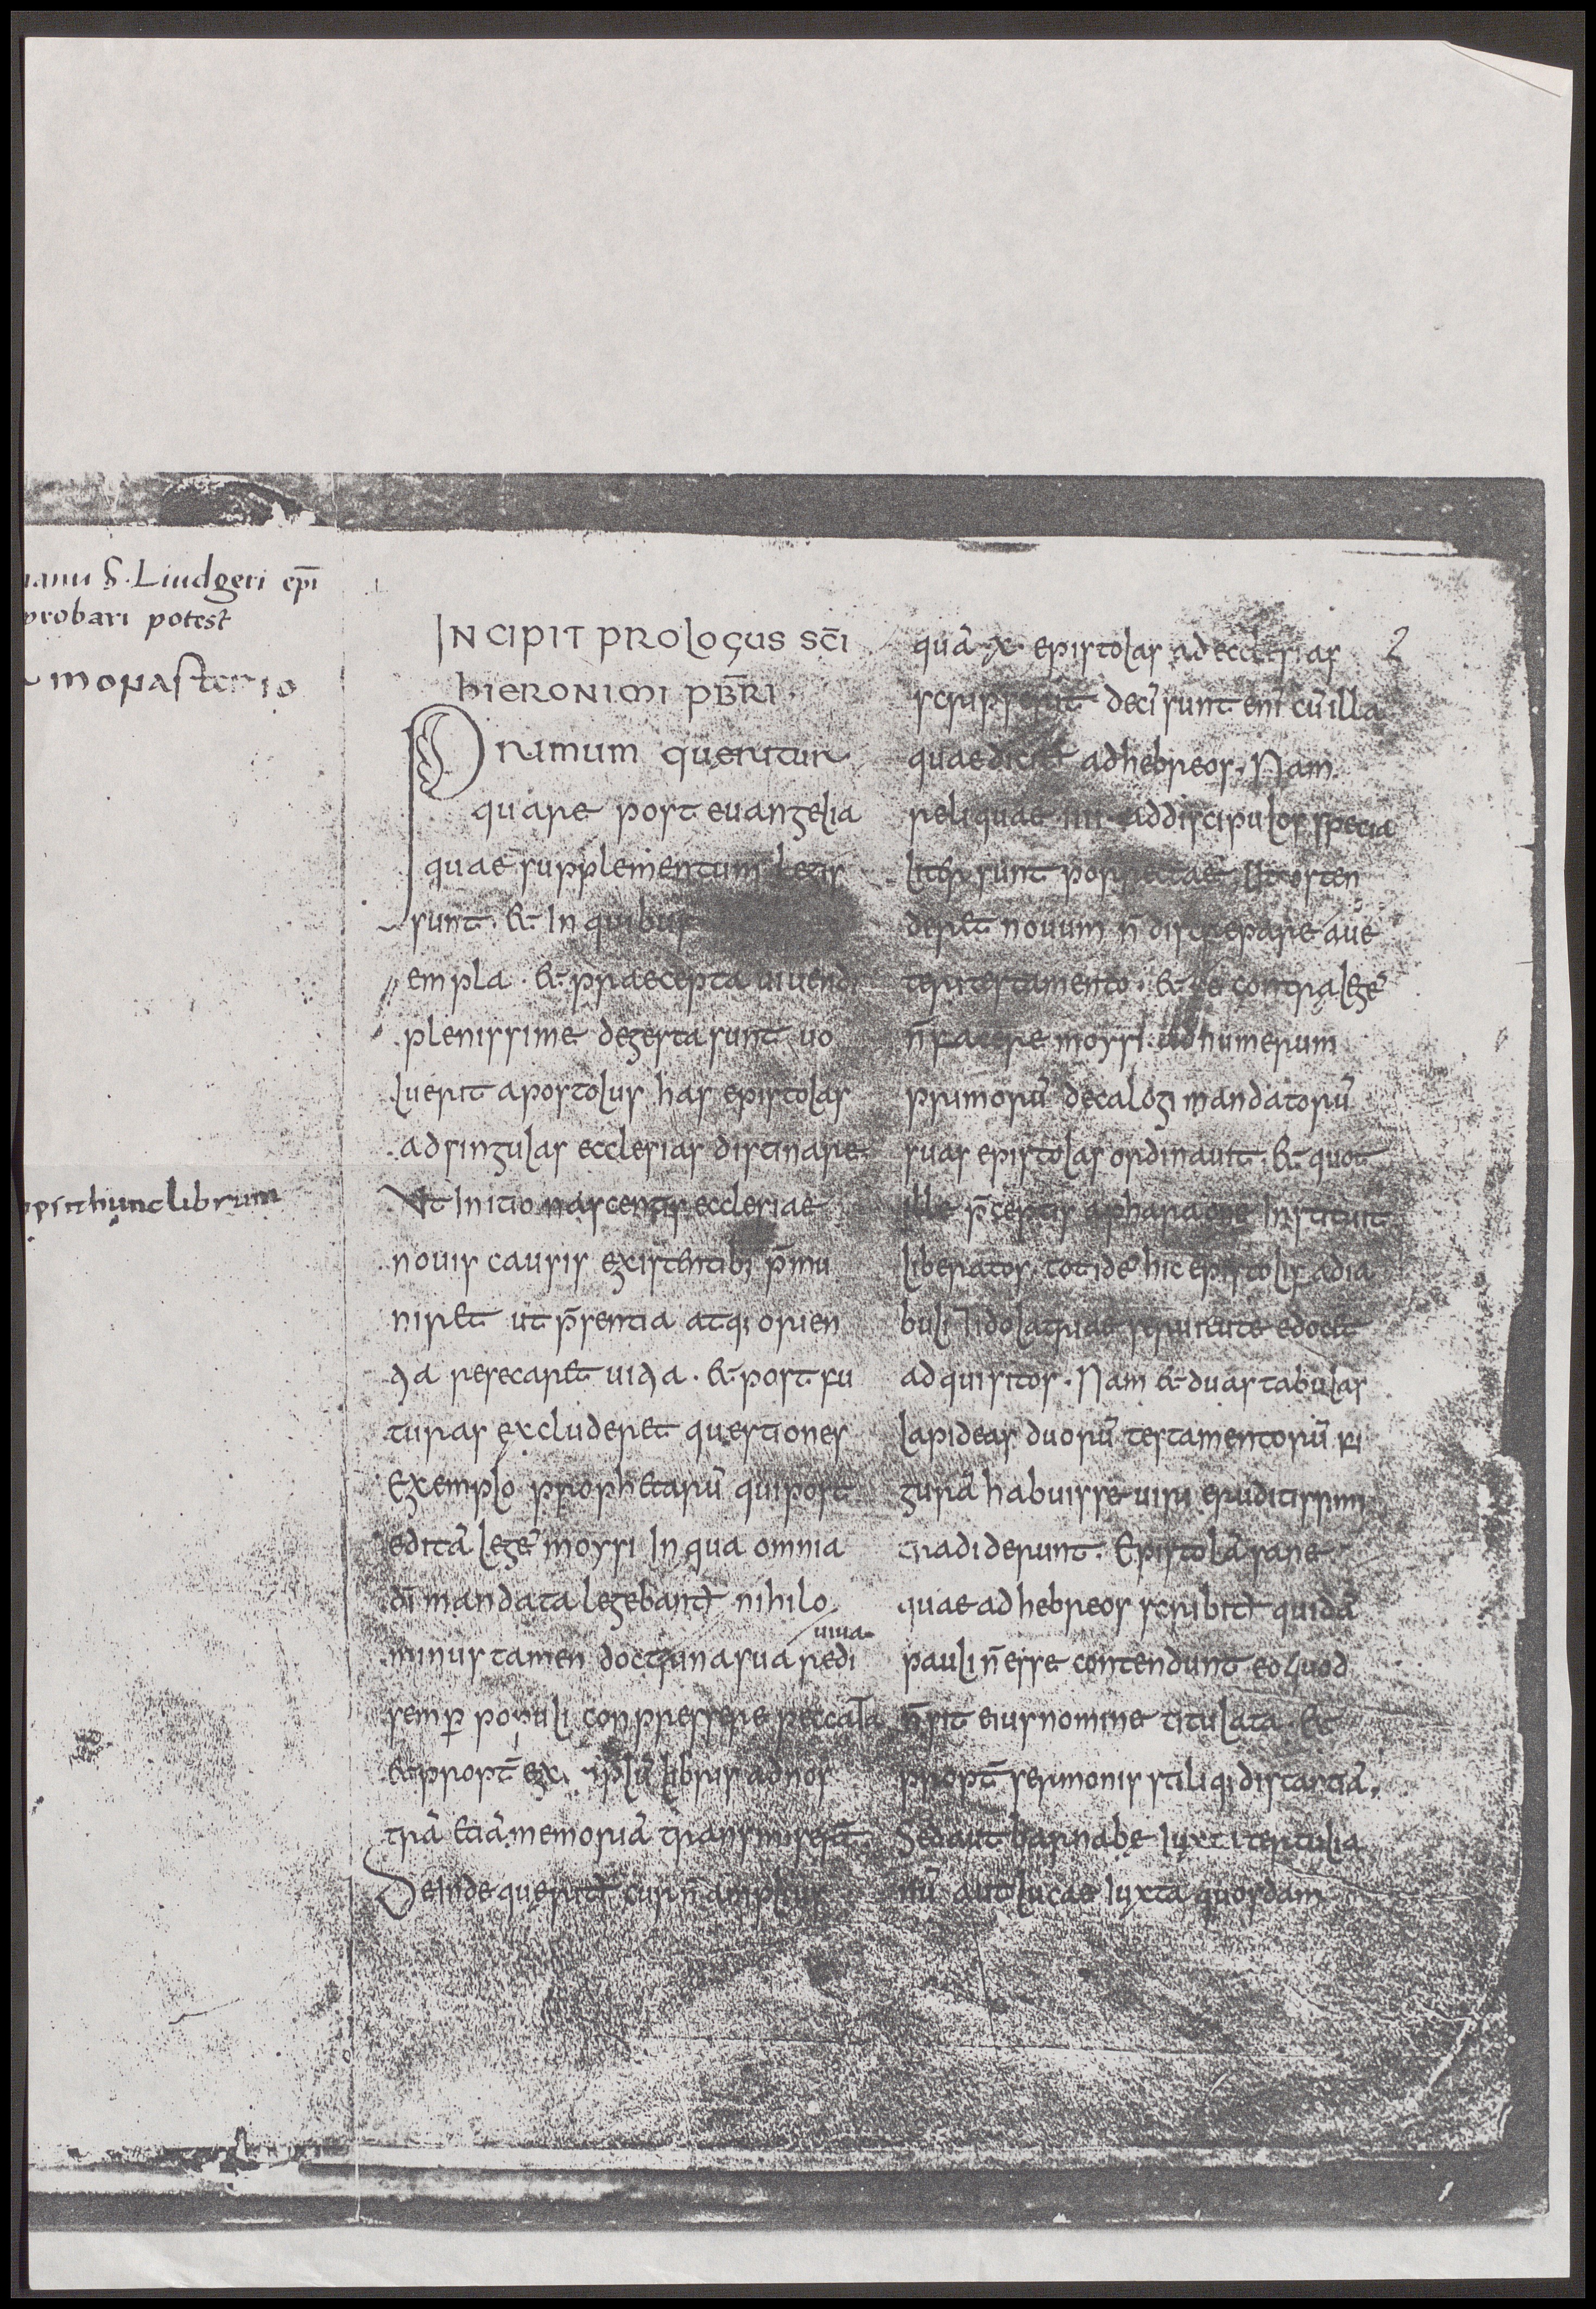 manu S. Liudgeri ep̄i
probari potest
monasterio
hunc librum
INCIPIT PROLOGUS SC̄I
HIERONIMI PB̄RI.
Primum queritur
quare post euangelia
quae supplementum legis
sunt. et in quibus
empla. et praecepta uiuendi
plenissime degesta sunt uo
luerit apostolus has epistolas
ad singulas ecclesias distinare.
Ut initio nascentis ecclesiae
nouis causis existentib; p̄mu
niret ut p̄sentia atq; orien
tia resecaret uitia. et post fu
turas excluderet questiones
Exemplo prophetarū qui post
editā legē moysi in qua omnia
dī mandata legebant̄ nihilo
minus tamen doctrina sua redi
uiua
semp̄ populi conpressere peccata
et propt̄ ex libris ad nos
trā etiā memoriā transmiserūt.
Deinde querit̄ cur n̄ amplius
2
quā x. epistolas ad ecclesias
scripserit decē sunt enī cū illa
quae dicit̄ ad hebreos. Nam
reliquae iiii ad discipulos specia
lit̄ sunt porrectae. Ut osten
deret nouum n̄ discrepare a ue
teri testamento. et sē contra legē
n̄ facere moysi. ad numerum
primorū decalogi mandatorū
suas epistolas ordinauit. et quot
ille p̄ceptis a pharaone instituit
liberatos. totidē hic epistolis a dia
buli et idolatriae seruitute edocet
adquisitos. Nam et duas tabulas
lapideas duorū testamentorū fi
gurā habuisse uiri eruditissimi
tradiderunt. Epistolā sane
quae ad hebreos scribit̄ quidā
pauli n̄ esse contendunt eo quod
n̄ sit eius nomine titulata. et
propt̄ sermonis stiliq; distantiā.
Sed aut barnabe iuxta tertulia
nū aut lucae iuxta quosdam